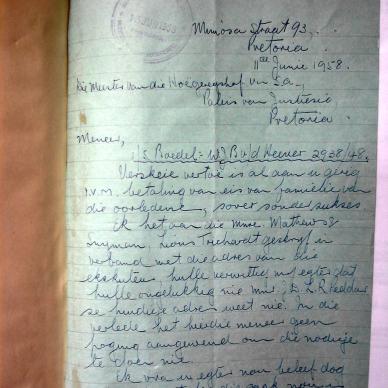 Mimosa Straat 93,
Pretoria.
11de Junie 1958.
Die Meester van die Hooggeregshof van S.A.,
Paleis van Justisie
Pretoria.
Meneer,
Boedel: v/d 2938/48.
Verskeie vertoë is al aan u gerig
i.v.m. betaling van eis van familie van
die oorledene, sover sonder sukses
Ek het aan die mnre. Mathews &
Snyman, Louis Trichardt geskryf in
verband met die adres van die
eksekuteur hulle vermeld egter dat
hulle ongelukkig nie mnr.
se huidige adres weet nie. In die
verlede het hierdie meneer geen
poging aangewend om die nodige
te doen nie.
Ek vra u egter nou beleef dog